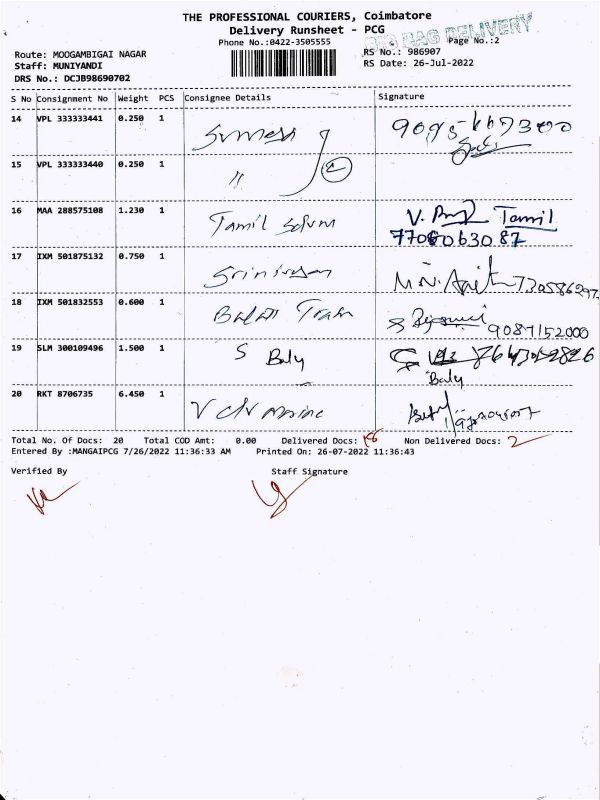 THE PROFESSIONAL COURIERS, Coimbatore
Delivery Runsheet - PCG
BAG DELIVERY
Phone No.:0422-3505555
Page No.:2
Route: MOOGAMBIGAI NAGAR
RS No.: 986907
Staff: MUNIYANDI
RS Date: 26-Jul-2022
DRS No.: DCJB98690702
S No Consignment No Weight PCS Consignee Details Signature
14 VPL 333333441 0.250 1
15 VPL 333333440 0.250 1 "
16 MAA 288575108 1.230 1 Tamil Selvm V. Tamil
17 IXM 501875132 0.750 1 Srinivasan
18 IXM 501832553 0.600 1 9087152000
19 SLM 300109496 1.500 1 S Baly
Baly
20 RKT 8706735 6.450 1
Total No. Of Docs: 20 Total COD Amt: 0.00 Delivered Docs: 18 Non Delivered Docs: 2
Entered By :MANGAIPCG 7/26/2022 11:36:33 AM Printed On: 26-07-2022 11:36:43
Verified By Staff Signature